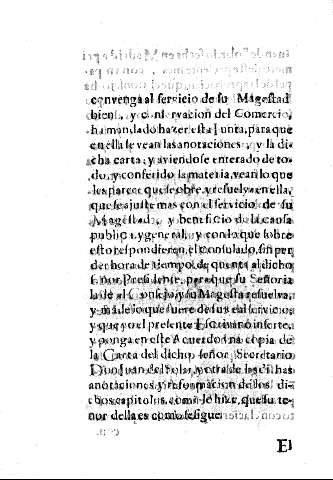 convenga al servicio de su Magestad
bien, y conservacion del Comercio,
ha mandado hazer esta Iunta, para que
en ella se vean las anotaciones, y la di-
cha carta; y aviendose enterado de to-
do, y conferido la materia, vean lo que
les parece que se obre, y resuelva en ella,
que se ajuste mas con el servicio de su
Magestad, y beneficio de la causa
publica, y general, y con lo que sobre
esto respondieren, el Consulado, sin per
der hora de tiempo, dè quenta al dicho
señor Presidente, para que su Señoria
la dè al Consejo, y su Magestad resuelva,
y mande lo que fuere de su real servicio,
y que yo el presente Escrivano inserte,
y ponga en este Acuerdo una copia de
la Carta del dicho señor Secretario
Don Juan del Solar, y otra de las dichas
anotaciones, y reformacion de los di-
chos capitulos, como lo hize, que su te-
nor della es como se sigue.
El